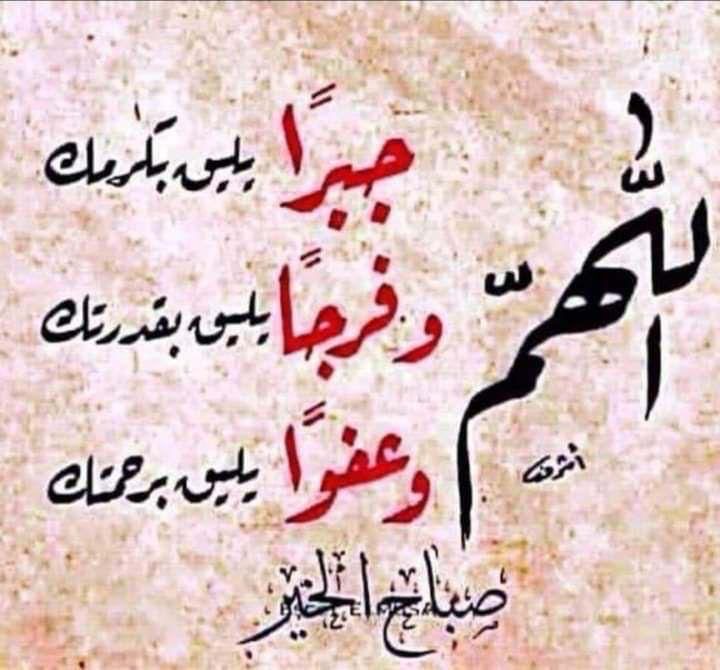 اللّٰهمّ
جبرًا يليق بكرمك
وفرجًا يليق بقدرتك
وعفوًا يليق برحمتك
أشرف
صباح الخير